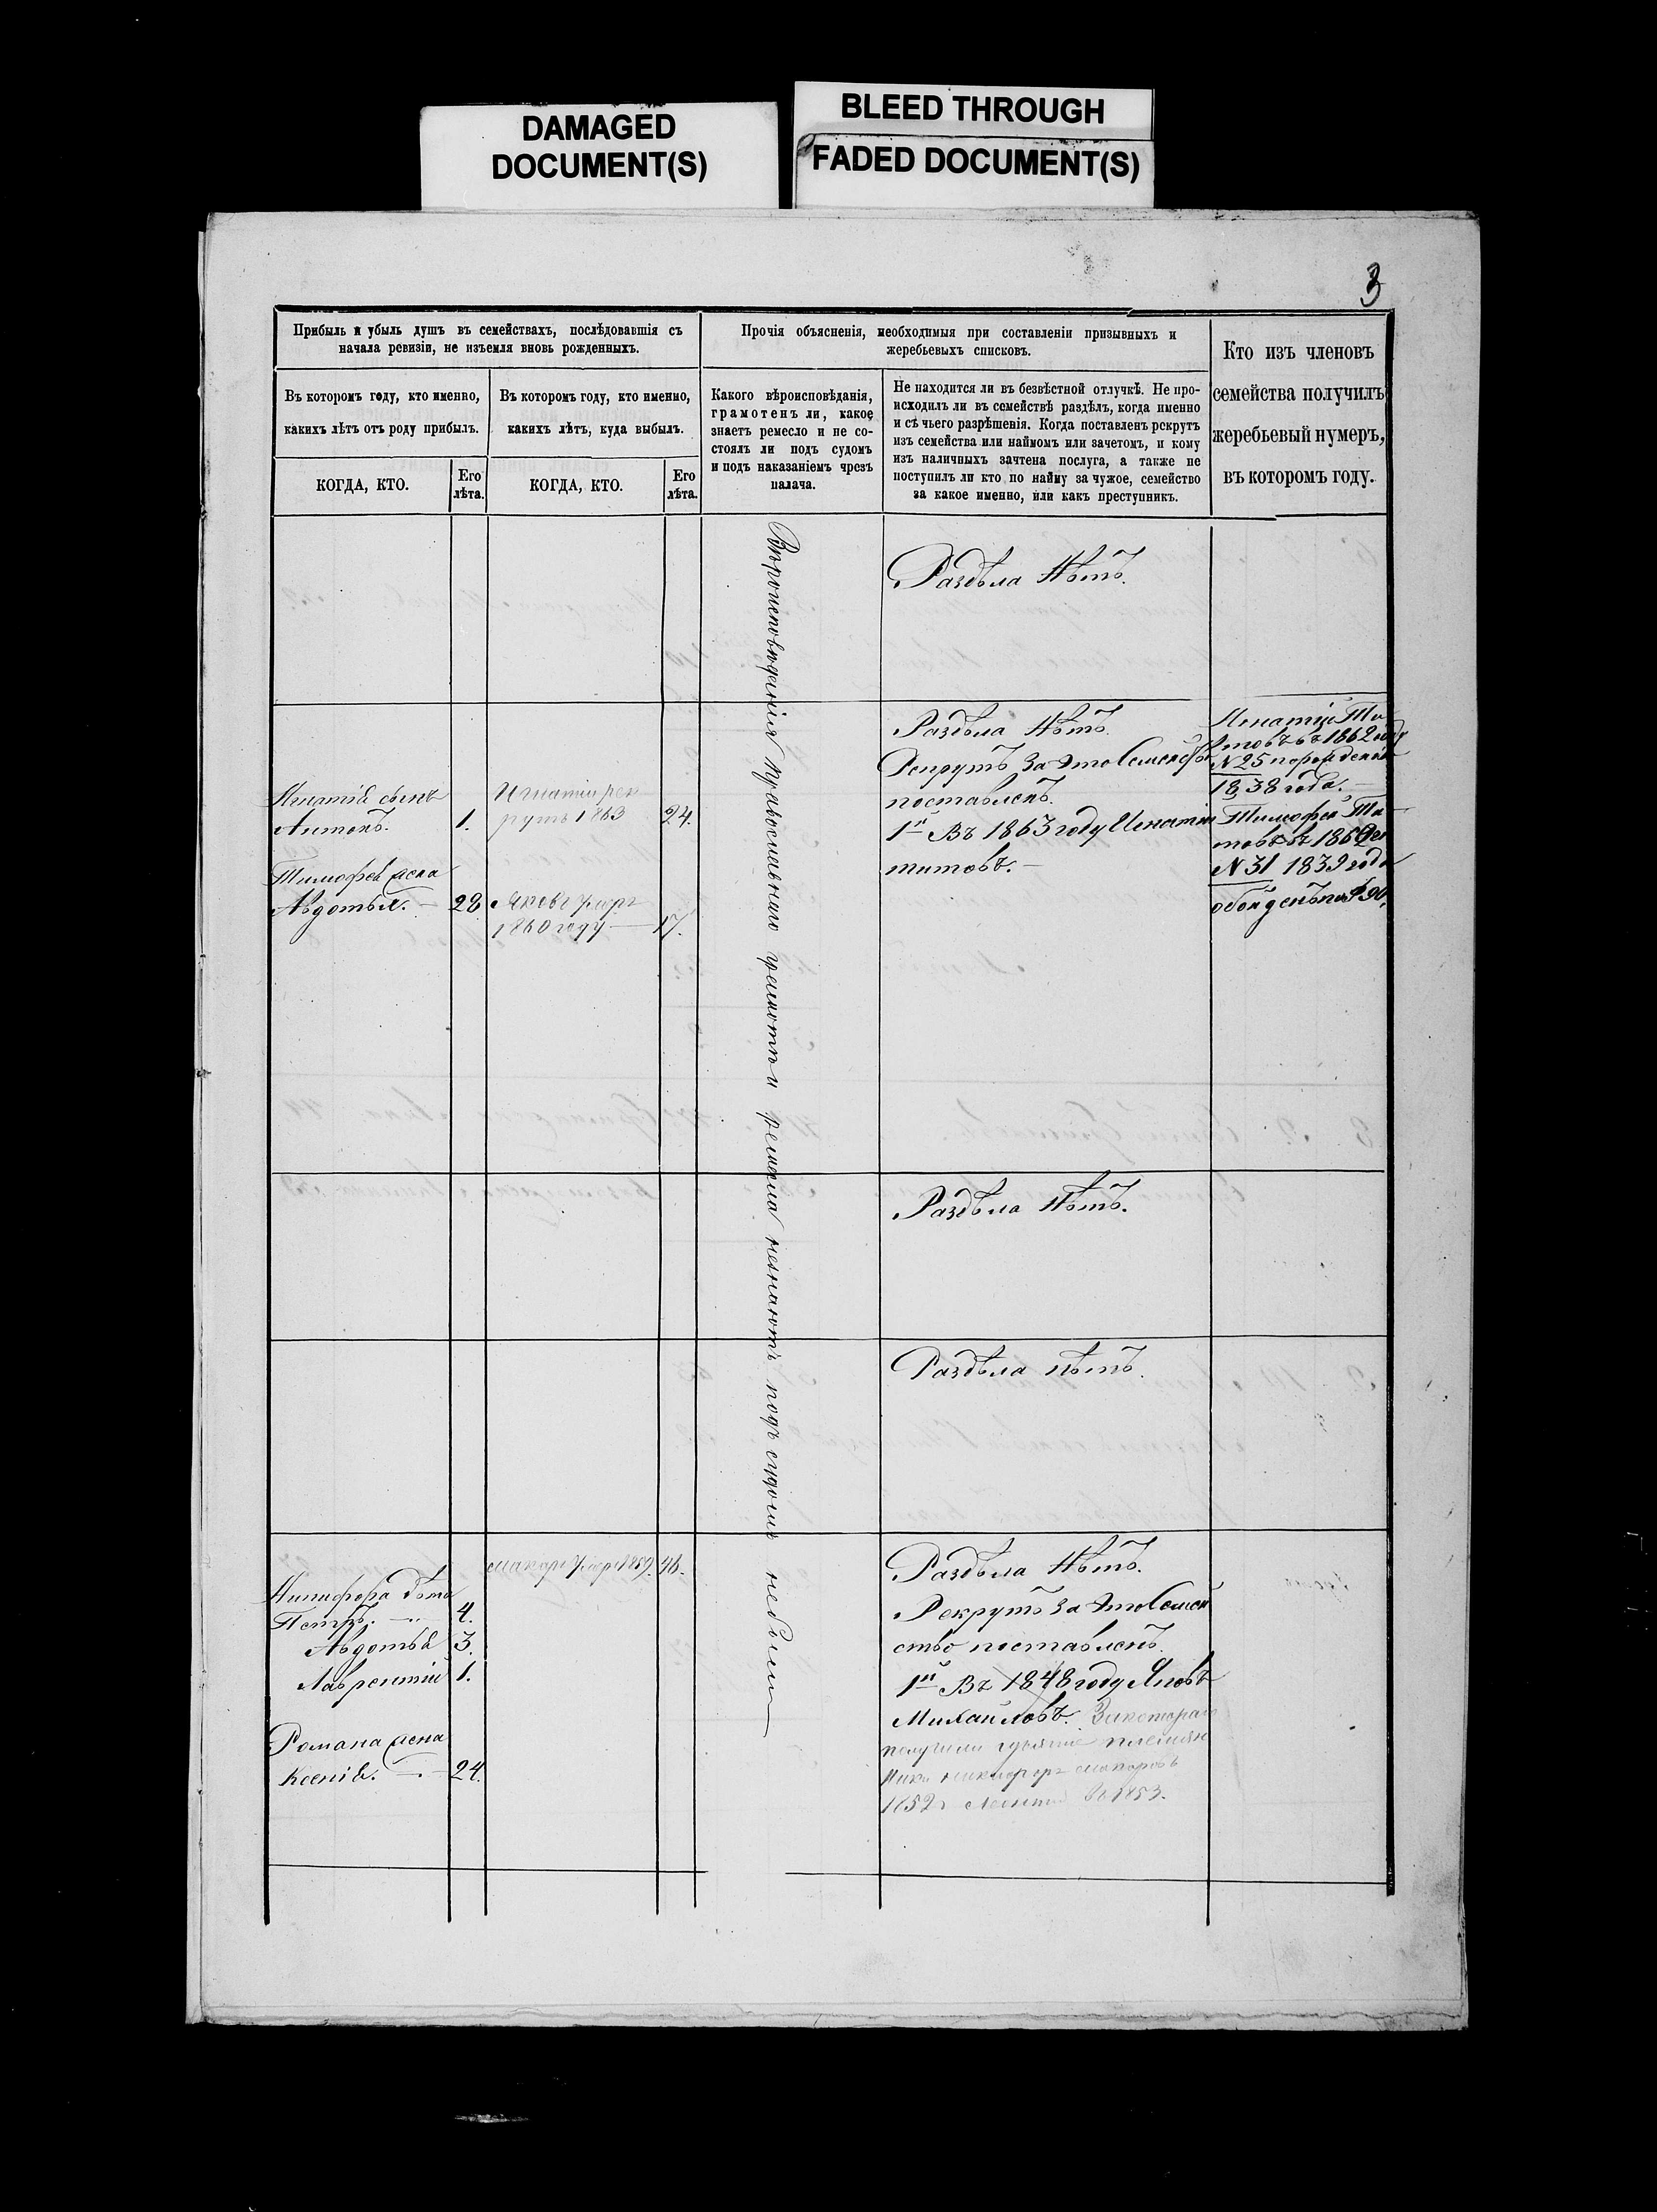 DAMAGED
DOCUMENT(S)
BLEED THROUGH
FADED DOCUMENT(S)
3
Прибыль и убыль душъ въ семействахъ, послѣдовавшія съ
начала ревизіи, не изъемля вновь рожденныхъ.
Въ которомъ году, кто именно,
какихъ лѣтъ отъ роду прибылъ.
Въ которомъ году, кто именно,
какихъ лѣтъ, куда выбылъ.
КОГДА, КТО.
Его
лѣта.
КОГДА, КТО.
Его
лѣта.
Прочія объясненія, необходимыя при составленіи призывныхъ и
жеребьевыхъ списковъ.
Какого вѣроисповѣданія,
грамотенъ ли, какое
знаетъ ремесло и не со-
стоялъ ли подъ судомъ
и подъ наказаніемъ чрезъ
палача.
Не находится ли въ безвѣстной отлучкѣ. Не про-
исходилъ ли въ семействѣ раздѣлъ, когда именно
и съ чьего разрѣшенія. Когда поставленъ рекрутъ
изъ семейства или наймомъ или зачетомъ, и кому
изъ наличныхъ зачтена послуга, а также не
поступилъ ли кто по найму за чужое, семейство
за какое именно, или какъ преступникъ.
Кто изъ членовъ
семейства получилъ
жеребьевый нумеръ,
въ которомъ году.
Вѣроисповѣденія православнаго грамотъ и ремесла незнаютъ подъ судомъ небыли
Раздѣла Нѣтъ.
Игнатія сынъ
Антонъ. 1.
Игнатій рек
рутъ 1863 24.
Тимофея жена
Авдотья. 28
Яковъ умеръ
1860 году 17.
Раздѣла Нѣтъ.
Рекрутъ За это Семейство
поставленъ.
1й Въ 1863 году Игнатій
титовъ.
Игнатій Ти
товъ въ 1862 году
N 25
1838 года.
Тимофей Ти
товъ въ
N 31 1839 года
Раздѣла Нѣтъ.
Раздѣла нѣтъ.
Макаръ умеръ 1859 46.
Никифора дѣти
Петръ. 4.
Авдотья 3.
Лаврентій 1.
Романа жена
Ксенія. 24.
Раздѣла Нѣтъ.
Рекрутъ За это Семей
ство поставленъ.
1й Въ 1848 году Яковъ
Михайловъ. Закотораго
получили
никифоръ макаровъ
1852 Леонтій въ 1853.